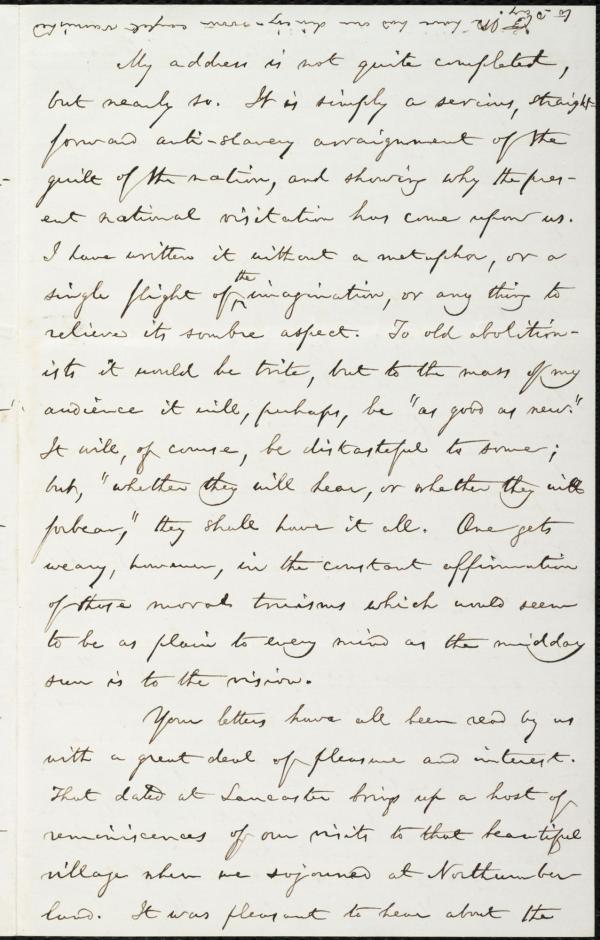 My address is not quite completed,
but nearly so. It is simply a serious, straight-
forward anti-slavery arraignment of the
guilt of the nation, and showing why the pres-
ent national visitation has come upon us.
I have written it without a metaphor, or a
single flight of the imagination, or any thing to
relieve its sombre aspect. To old abolition-
ists it would be trite, but to the mass of my
audience it will, perhaps, be "as good as new."
It will, of course, be distasteful to some;
but, "whether they will hear, or whether they will
forbear," they shall have it all. One gets
weary, however, in the constant affirmation
of those moral truisms which would seem
to be as plain to every mind as the midday
sun is to the vision.
Your letters have all been read by us
with a great deal of pleasure and interest.
That dated at Lancaster brings up a host of
reminiscences of our visits to that beautiful
village when we sojourned at Northumber-
land. It was pleasant to hear about the